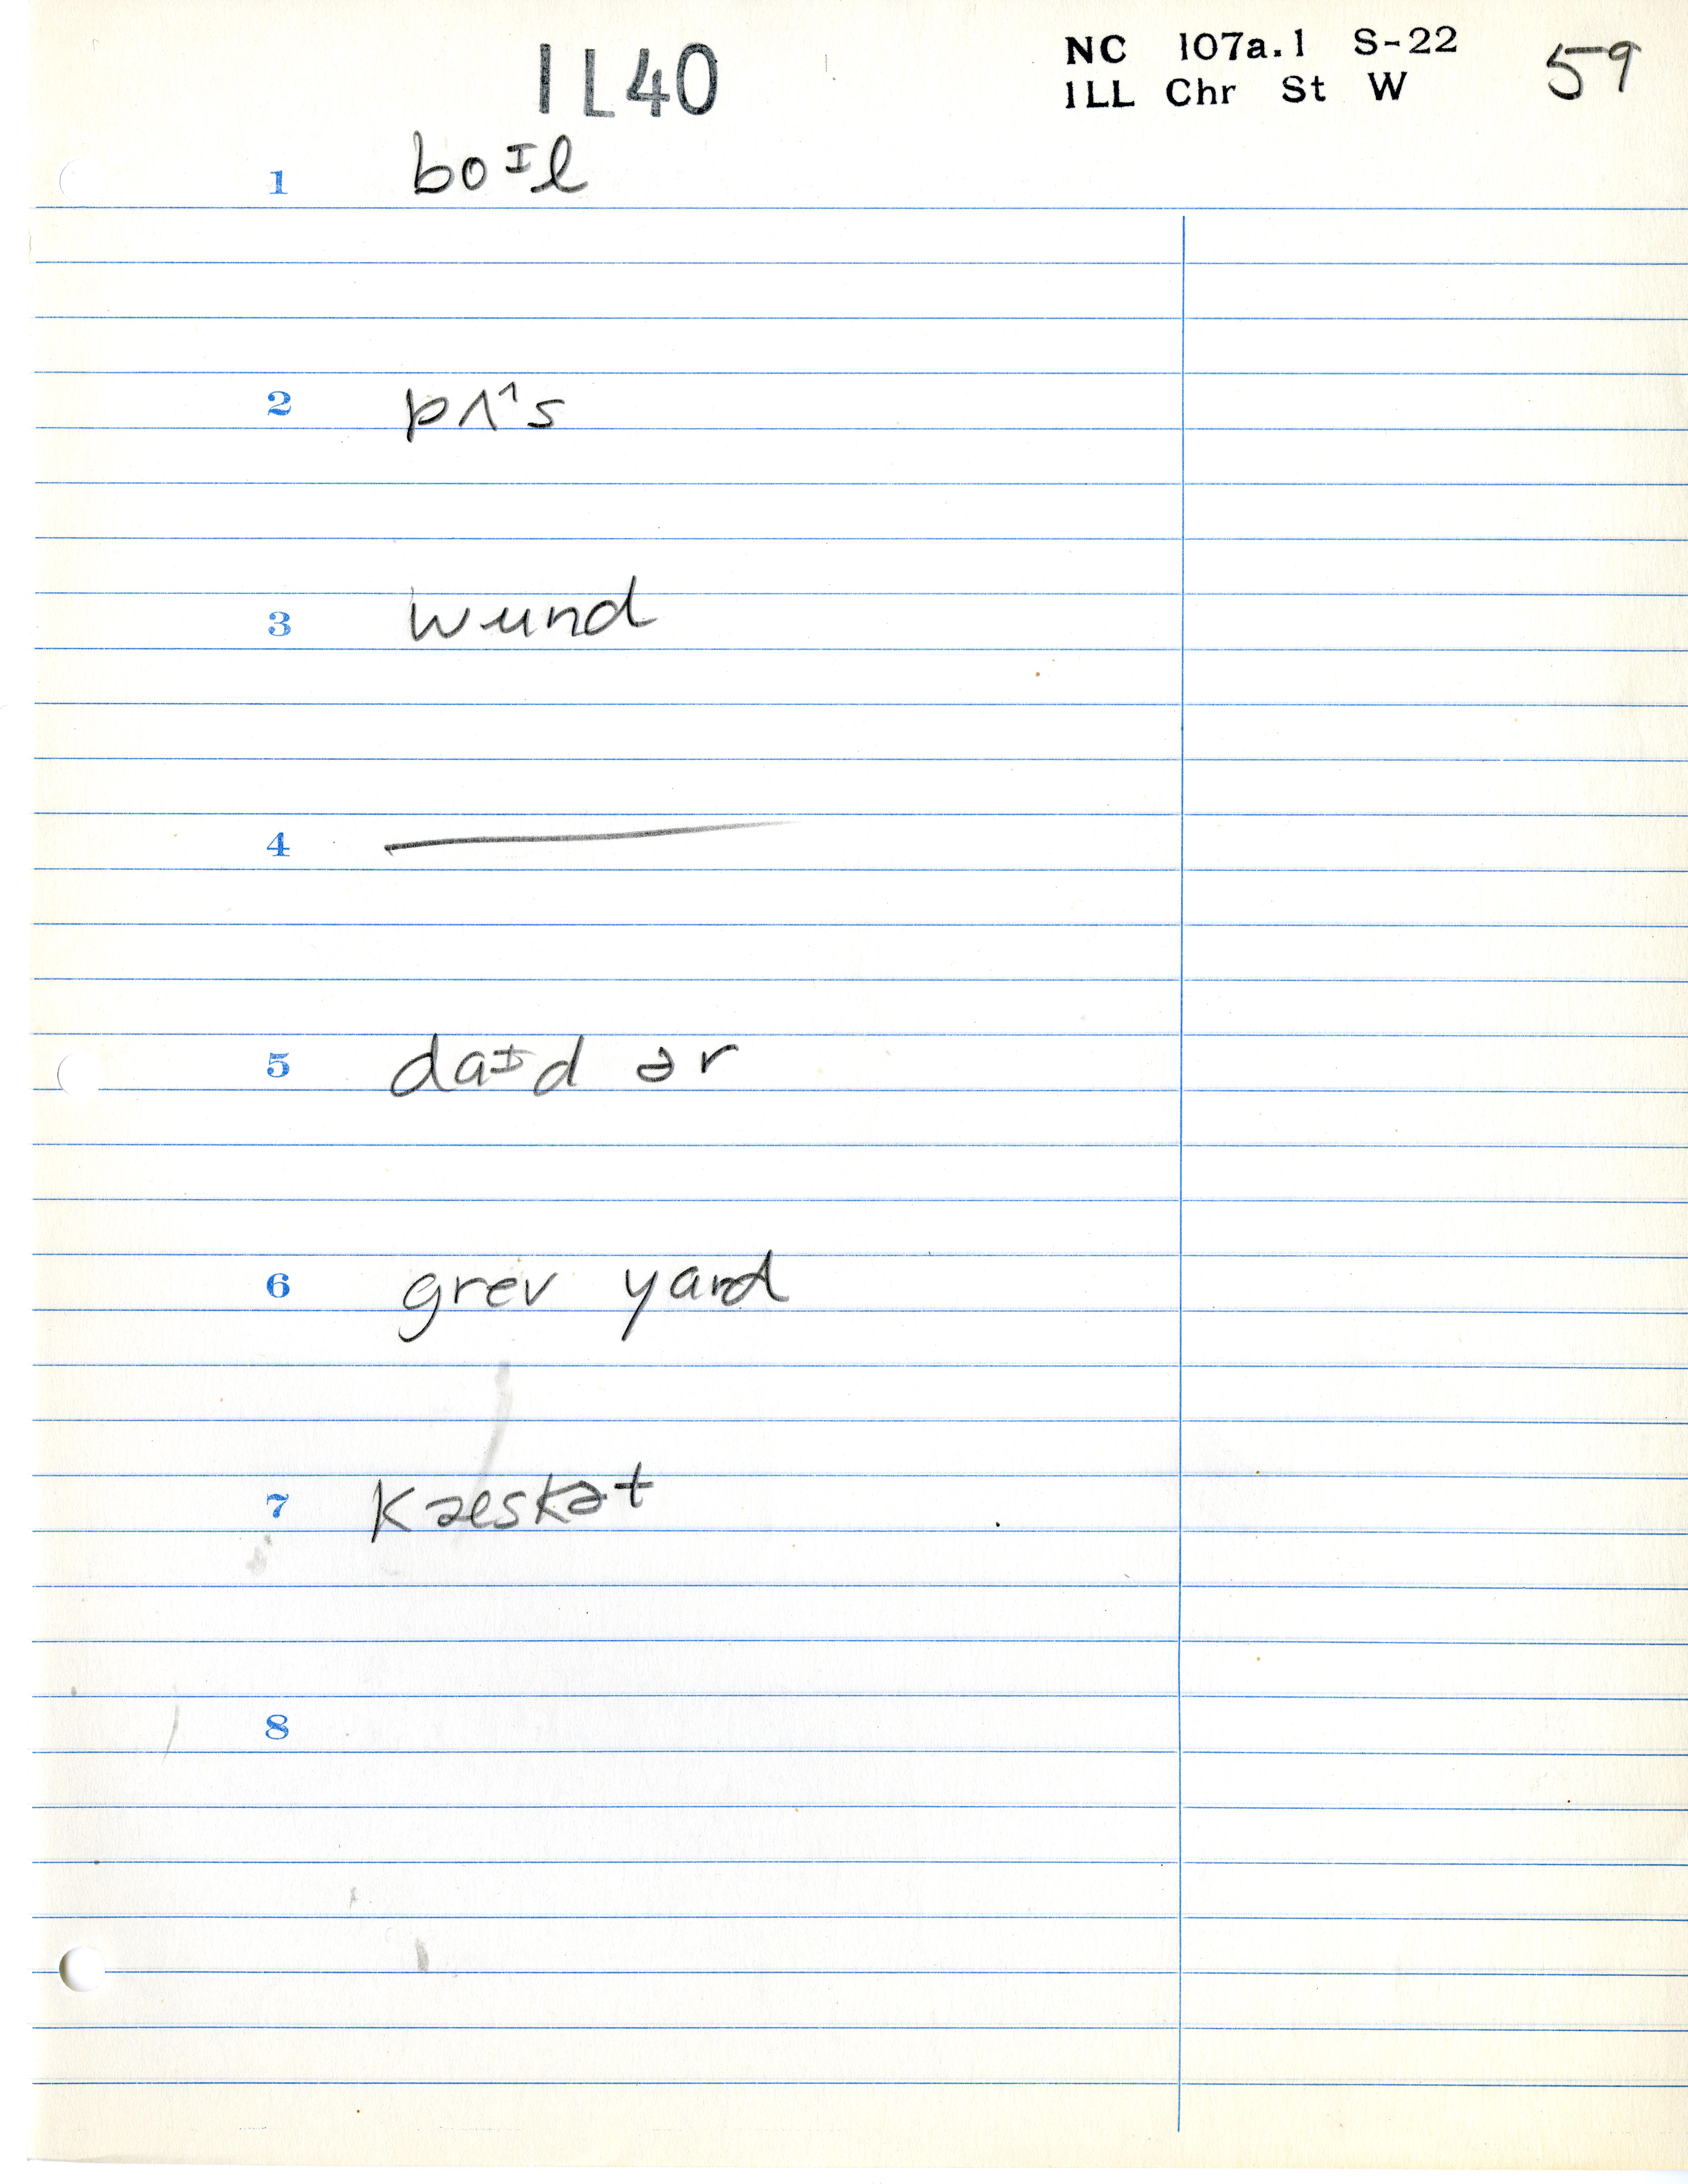 IL40
NC 107a.1 S-22 59
ILL Chr St W
1 boɪl
2 pʌ^s
3 wund
4 —
5 daɪd ər
6 grev yard
7 kæskət
8